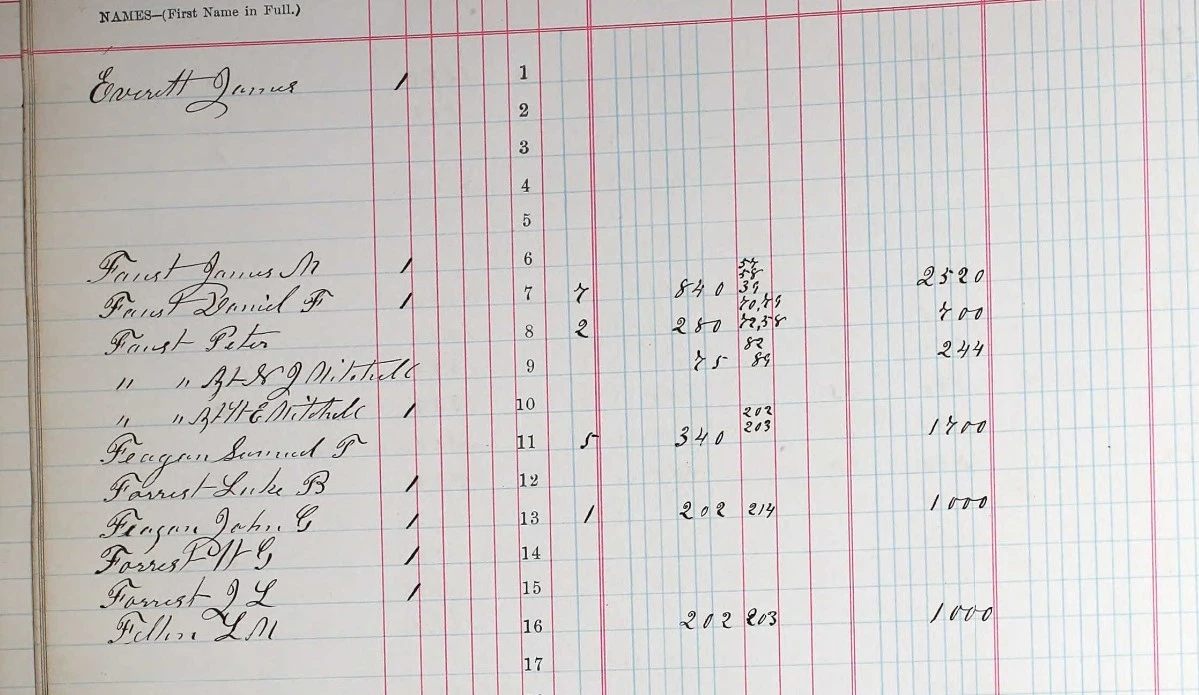 NAMES—(First Name in Full.)
Everett James / 1
2
3
4
5
Faust James M / 6
57
58
Faust Daniel F / 7 7 840 39 2520
70,79
Faust Peter 8 2 280 72,58 700
82
" " By N J Mitchell 9 75 89 244
" " Mitchell / 10
202
Feagan Samuel T 11 5 340 203 1700
Forrest Luke B / 12
Feagan John G / 13 1 202 214 1000
Forrest W G / 14
Forrest J L / 15
L M 16 202 203 1000
17